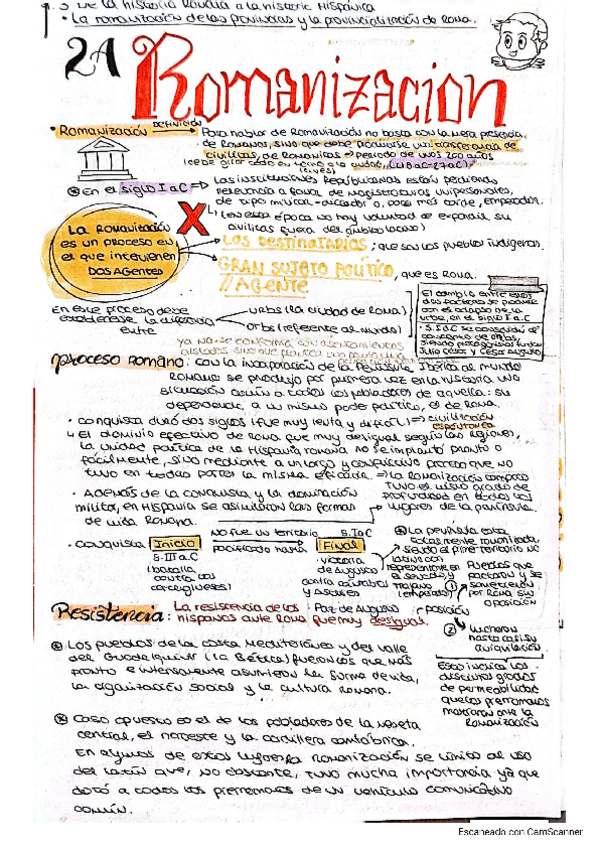 1. De la historia Romana a la historia Hispánica
• La romanización de las provincias y la provincialización de Roma.
2A Romanizacion
• Romanización DEFINICIÓN Para hablar de Romanización no basta con la mera presencia
de Romanos, sino que debe producirse una transferencia de
civilitas, de Romanitas ⇒ periodo de unos 200 años
En el siglo I a.C → Las instituciones Republicanas están perdiendo
relevancia a favor de magistraturas unipersonales,
de tipo militar - dictador o, poco más tarde, emperador.
(en esta época no hay voluntad de expandir su
civilitas fuera del ámbito
La romanización
es un proceso en
el que intervienen
DOS Agentes
LOS DESTINATARIOS; que son los pueblos indígenas.
GRAN SUJETO POLÍTICO
// AGENTE, que es Roma.
En este proceso debe
establecerse la diferencia
entre
urbs (la ciudad de Roma)
orbs (referente al mundo)
El cambio entre estos
dos factores se produce
en el siglo I a.C
Julio César y César Augusto
ya no se conforma con
Proceso romano: con la incorporación de la Península Ibérica al mundo
Romano se produjo por primera vez en la historia una
situación común a todos los pobladores de aquella: su
dependencia a un mismo poder político, el de Roma.
• conquista duró dos siglos (fue muy lenta y difícil) ⇒ civilización
espontánea
↳ El dominio efectivo de Roma fue muy desigual según las regiones,
la unidad política de la Hispania romana no se implantó pronto o
fácilmente, sino mediante a un largo y conflictivo proceso que no
tuvo en todas partes la misma eficacia. ⇒ la romanización tampoco
tuvo el mismo grado de
profundidad en todos los
lugares de la península.
• Además de la conquista y la dominación
militar, en Hispania se asimilaron las formas
de vida Romana.
• conquista Inicio
S. III a.C
(batalla
contra los
cartagineses)
no fue un territorio
pacificado hasta
S. I a.C
Final
• victoria
de Augusto
contra cántabros
y Astures
Paz de Augusto
La península está
totalmente romanizada,
siendo el primer territorio no
latino con
representante en
el senado y
Trajano
(emperador)
① Pueblos que
pactaron y se
sometieron
por Roma sin
oposición
oposición
② lucharon
hasta casi su
aniquilación.
Resistencia: La resistencia de los
hispanos ante Roma fue muy desigual.
Esto indica los
distintos grados
de permeabilidad
que los prerromanos
mostraron ante la
Romanización
Los pueblos de la costa Mediterráneo y del valle
del Guadalquivir (la Bética) fueron los que más
pronto e intensamente asumieron la forma de vida,
la organización social y la cultura romana.
Caso opuesto es el de los pobladores de la meseta
central, el noroeste y la cordillera cantábrica.
En algunos de estos lugares la romanización se limitó al uso
del latín que, no obstante, tuvo mucha importancia ya que
dotó a todos los prerromanos de un vehículo comunicativo
común.
Escaneado con CamScanner